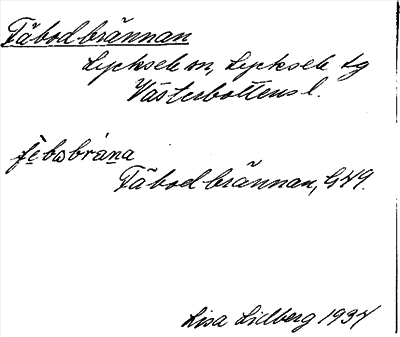 Fäbodbrännan
Lycksele sn, Lycksele lg
Västerbottens l.
fèbobrana
Fäbodbrännan, G49.
Lisa Lidberg 1934